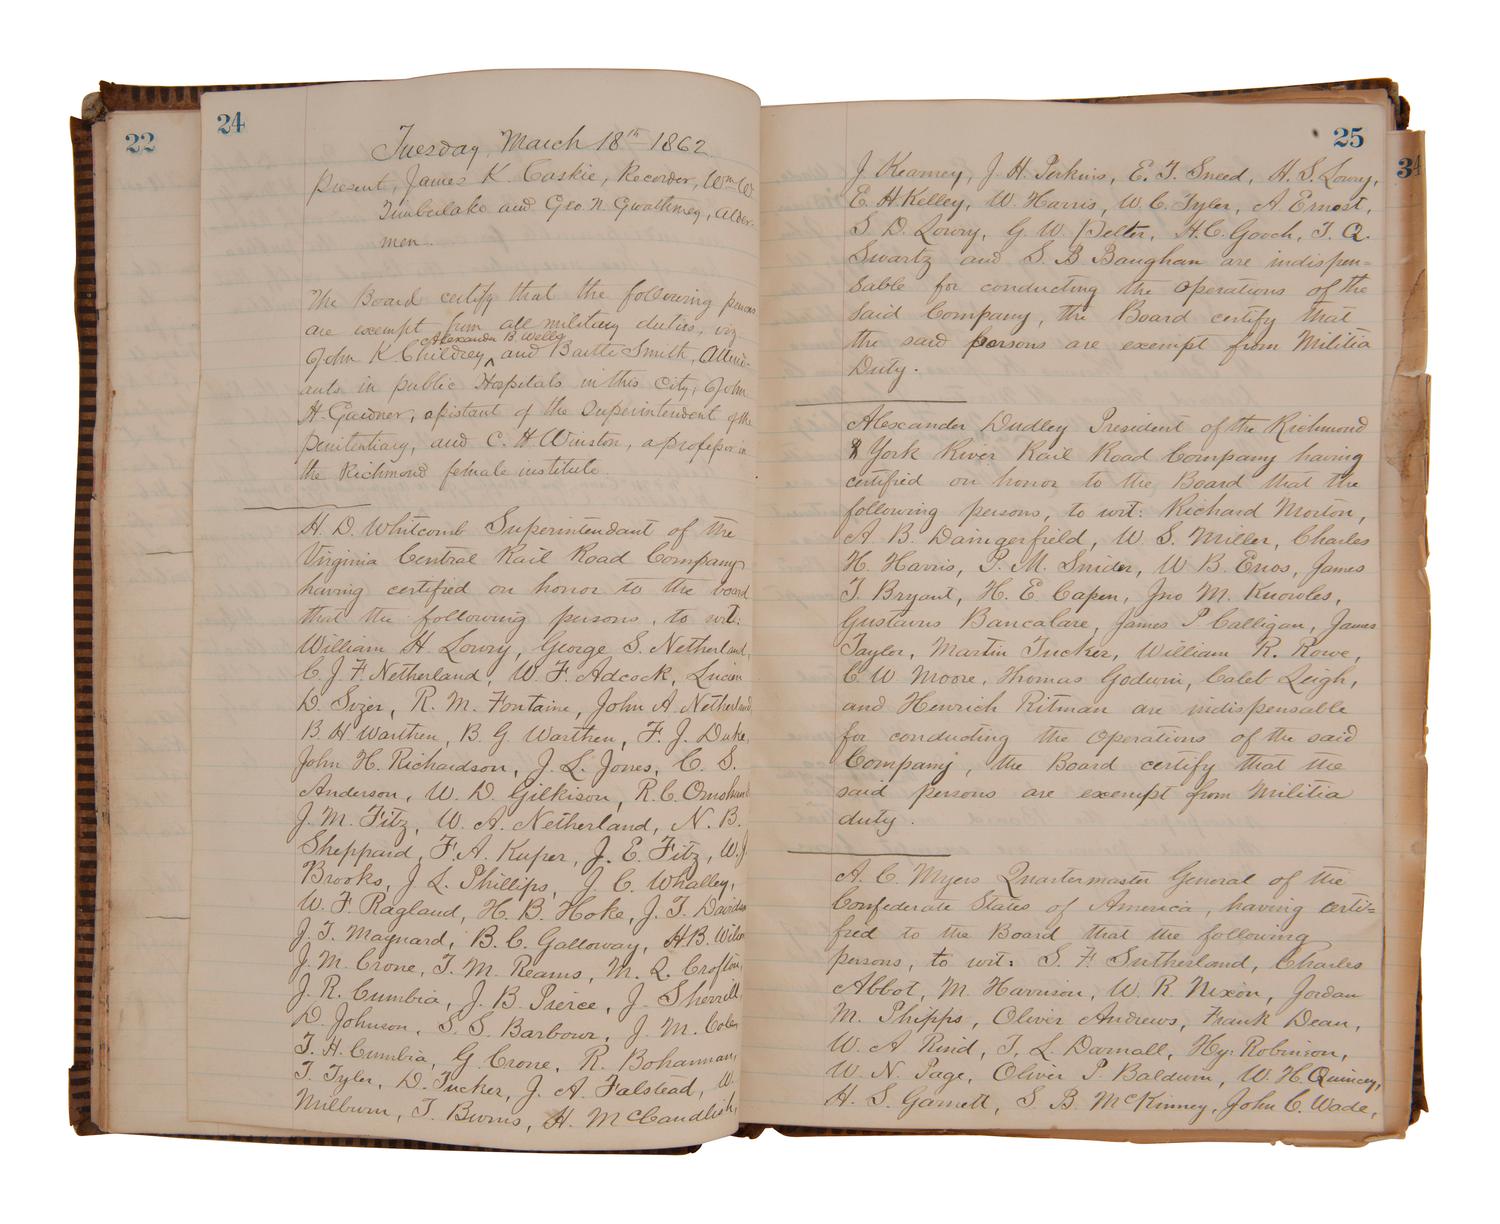 22
24
Tuesday, March 18th 1862
Present, James K. Caskie, Recorder, Wm W
Timberlake and Geo. N. Gwathmey, Alder-
men.
The Board certify that the following persons
are exempt from all military duties, viz
Alexander B. Wells
John K Childrey ^ and Bartlett Smith, Attend-
ants in public Hospitals in this city, John
H. Gardner, assistant of the Superintendent of the
penitentiary, and C. H Winston, a professor in
the Richmond female institute.
H. D. Whitcomb Superintendant of the
Virginia Central Rail Road Company
having certified on honor to the board
that the following persons, to wit:
William H. Lowry, George S. Netherland,
C. J. F. Netherland, W. F. Adcock, Lucien
D. Sizer, R. M. Fontaine, John A. Netherland
B. H Warthen, B. G. Warthen, F. J. Duke,
John H. Richardson, J. L. Jones, C. S.
Anderson, W. D. Gilkison, R. C.
J. M. Fitz, W. A. Netherland, N. B.
Sheppard, F. A. Kuper, J. E. Fitz, W. J
Brooks, J. L. Phillips, J. C. Whalley,
W. F. Ragland, H. B. Hoke, J. T. Davidson
J. T. Maynard, B. C. Galloway, H. B. Wilson
J. M. Crone, T. M. Reams, M. L. Crofton,
J. R. Cumbia, J. B. Pierce, J. Sherrill,
D. Johnson, S. S. Barbour, J. M. Coles
T. H. Cumbia, G. Crone, R. Bohannan,
T. Tyler, D. Tucker, J. A. Falstead, W.
Milburn, T. Burns, H. McCandlish,
25
34
J. Kearney, J. H. Perkins, E. T. Sneed, H. S. Lowry,
E. H. Kelley, W. Harris, W. C. Tyler, A. Ernest,
S. D. Lowry, G. W. Pelter, H. C. Gooch, T. Q.
Swartz and S. B Baughan are indispen=
sable for conducting the operations of the
said Company, the Board certify that
the said persons are exempt from Militia
Duty.
Alexander Dudley President of the Richmond
& York River Rail Road Company having
certified on honor to the Board that the
following persons, to wit: Richard Morton,
A. B. Daingerfield, W. S. Miller, Charles
H. Harris, P. M. Snider, W B. Enos, James
T. Bryant, H. E Capen, Jno M. Knowles,
Gustavus Bancalare, James P Calligan, James
Taylor, Martin Tucker, William R. Rowe,
C. W Moore, Thomas Godwin, Caleb Leigh,
and Henrich Ritman are indispensable
for conducting the operations of the said
Company, the Board certify that the
said persons are exempt from Militia
duty.
A. C. Myers Quartermaster General of the
Confederate States of America, having certi=
fied to the Board that the following
persons, to wit: S. F. Sutherland, Charles
Abbot, M. Harrison, W. R. Nixon, Jordan
M. Phipps, Oliver Andrews, Frank Dean,
W. A Rind, T. L. Darnall, Hy: Robinson,
W. N. Page, Oliver P. Baldwin, W. H. Quincey,
H. S. Garnett, S. B. McKinney, John C. Wade,